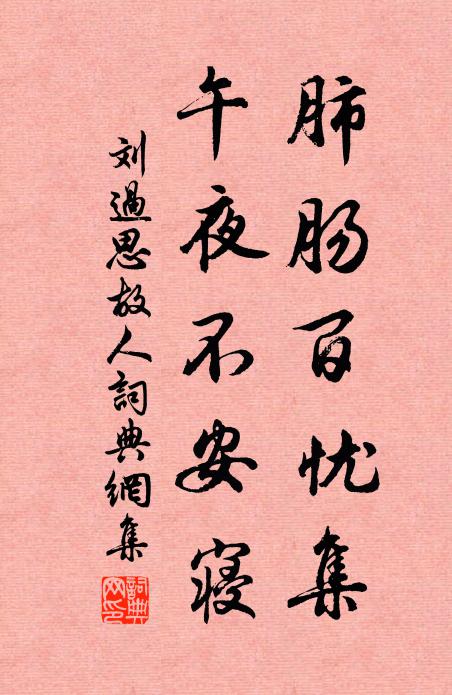 肺肠百忧集
午夜不安寝
刘過思故人詞典網集
詞典网印